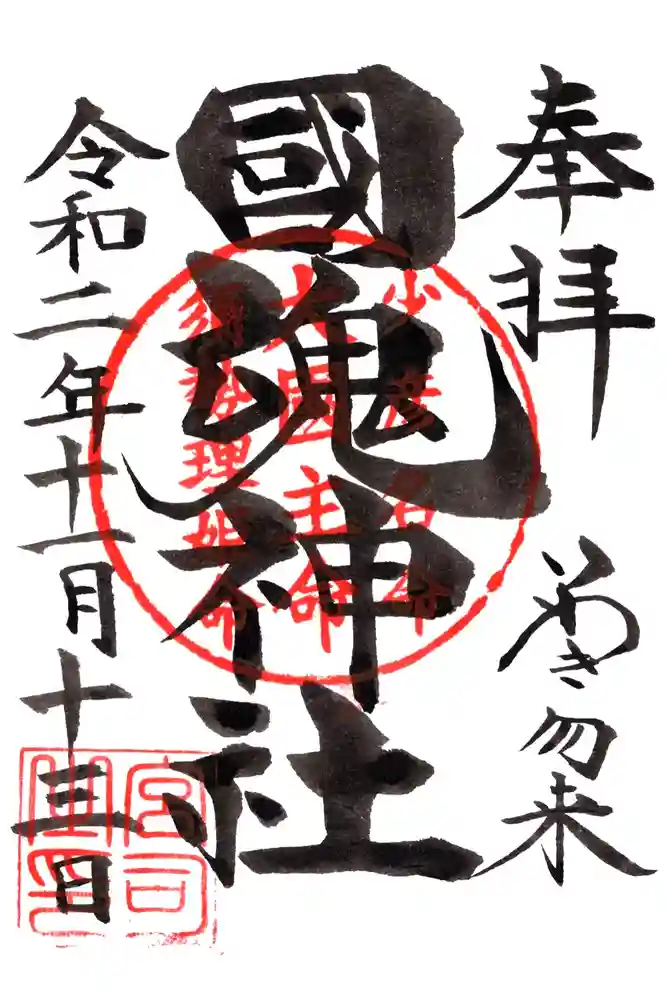 奉拝
いわき勿来
國魂神社
少彦名命
大国主命
須勢理姫命
令和二年十一月十三日
宮司之印